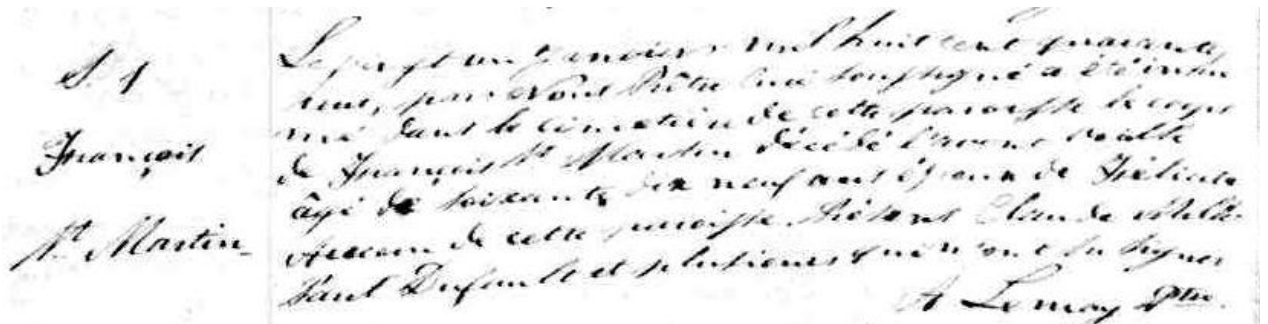 S. 1
François
St. Martin
Le vingt un Janvier mil huit cent quarante
neuf, par Nous Prêtre Curé soussigné a été inhu
mé dans le cimetière de cette paroisse le corps
de François St Martin décédé l'avant veille
âgé de soixante dix neuf ans époux de
de cette paroisse. Présent Claude
Paul Dufault et plusieurs qui n'ont su signer
A Lemay Ptre.